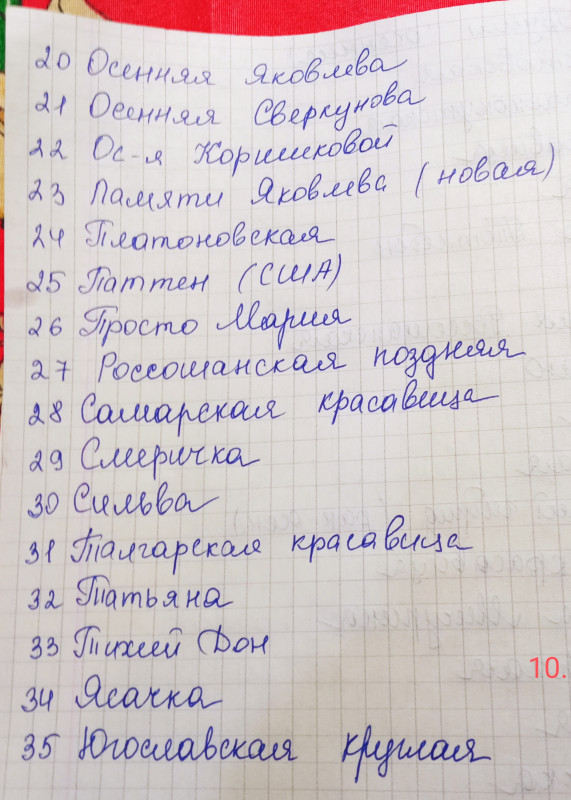 20 Осенняя Яковлева
21 Осенняя Сверкунова
22 Ос-я Коршиковой
23 Памяти Яковлева (новая)
24 Платоновская
25 Паттен (США)
26 Просто Мария
27 Россошанская поздняя
28 Самарская красавица
29 Смеричка
30 Сильва
31 Талгарская красавица
32 Татьяна
33 Тихий Дон
10.
34 Ясачка
35 Югославская круглая